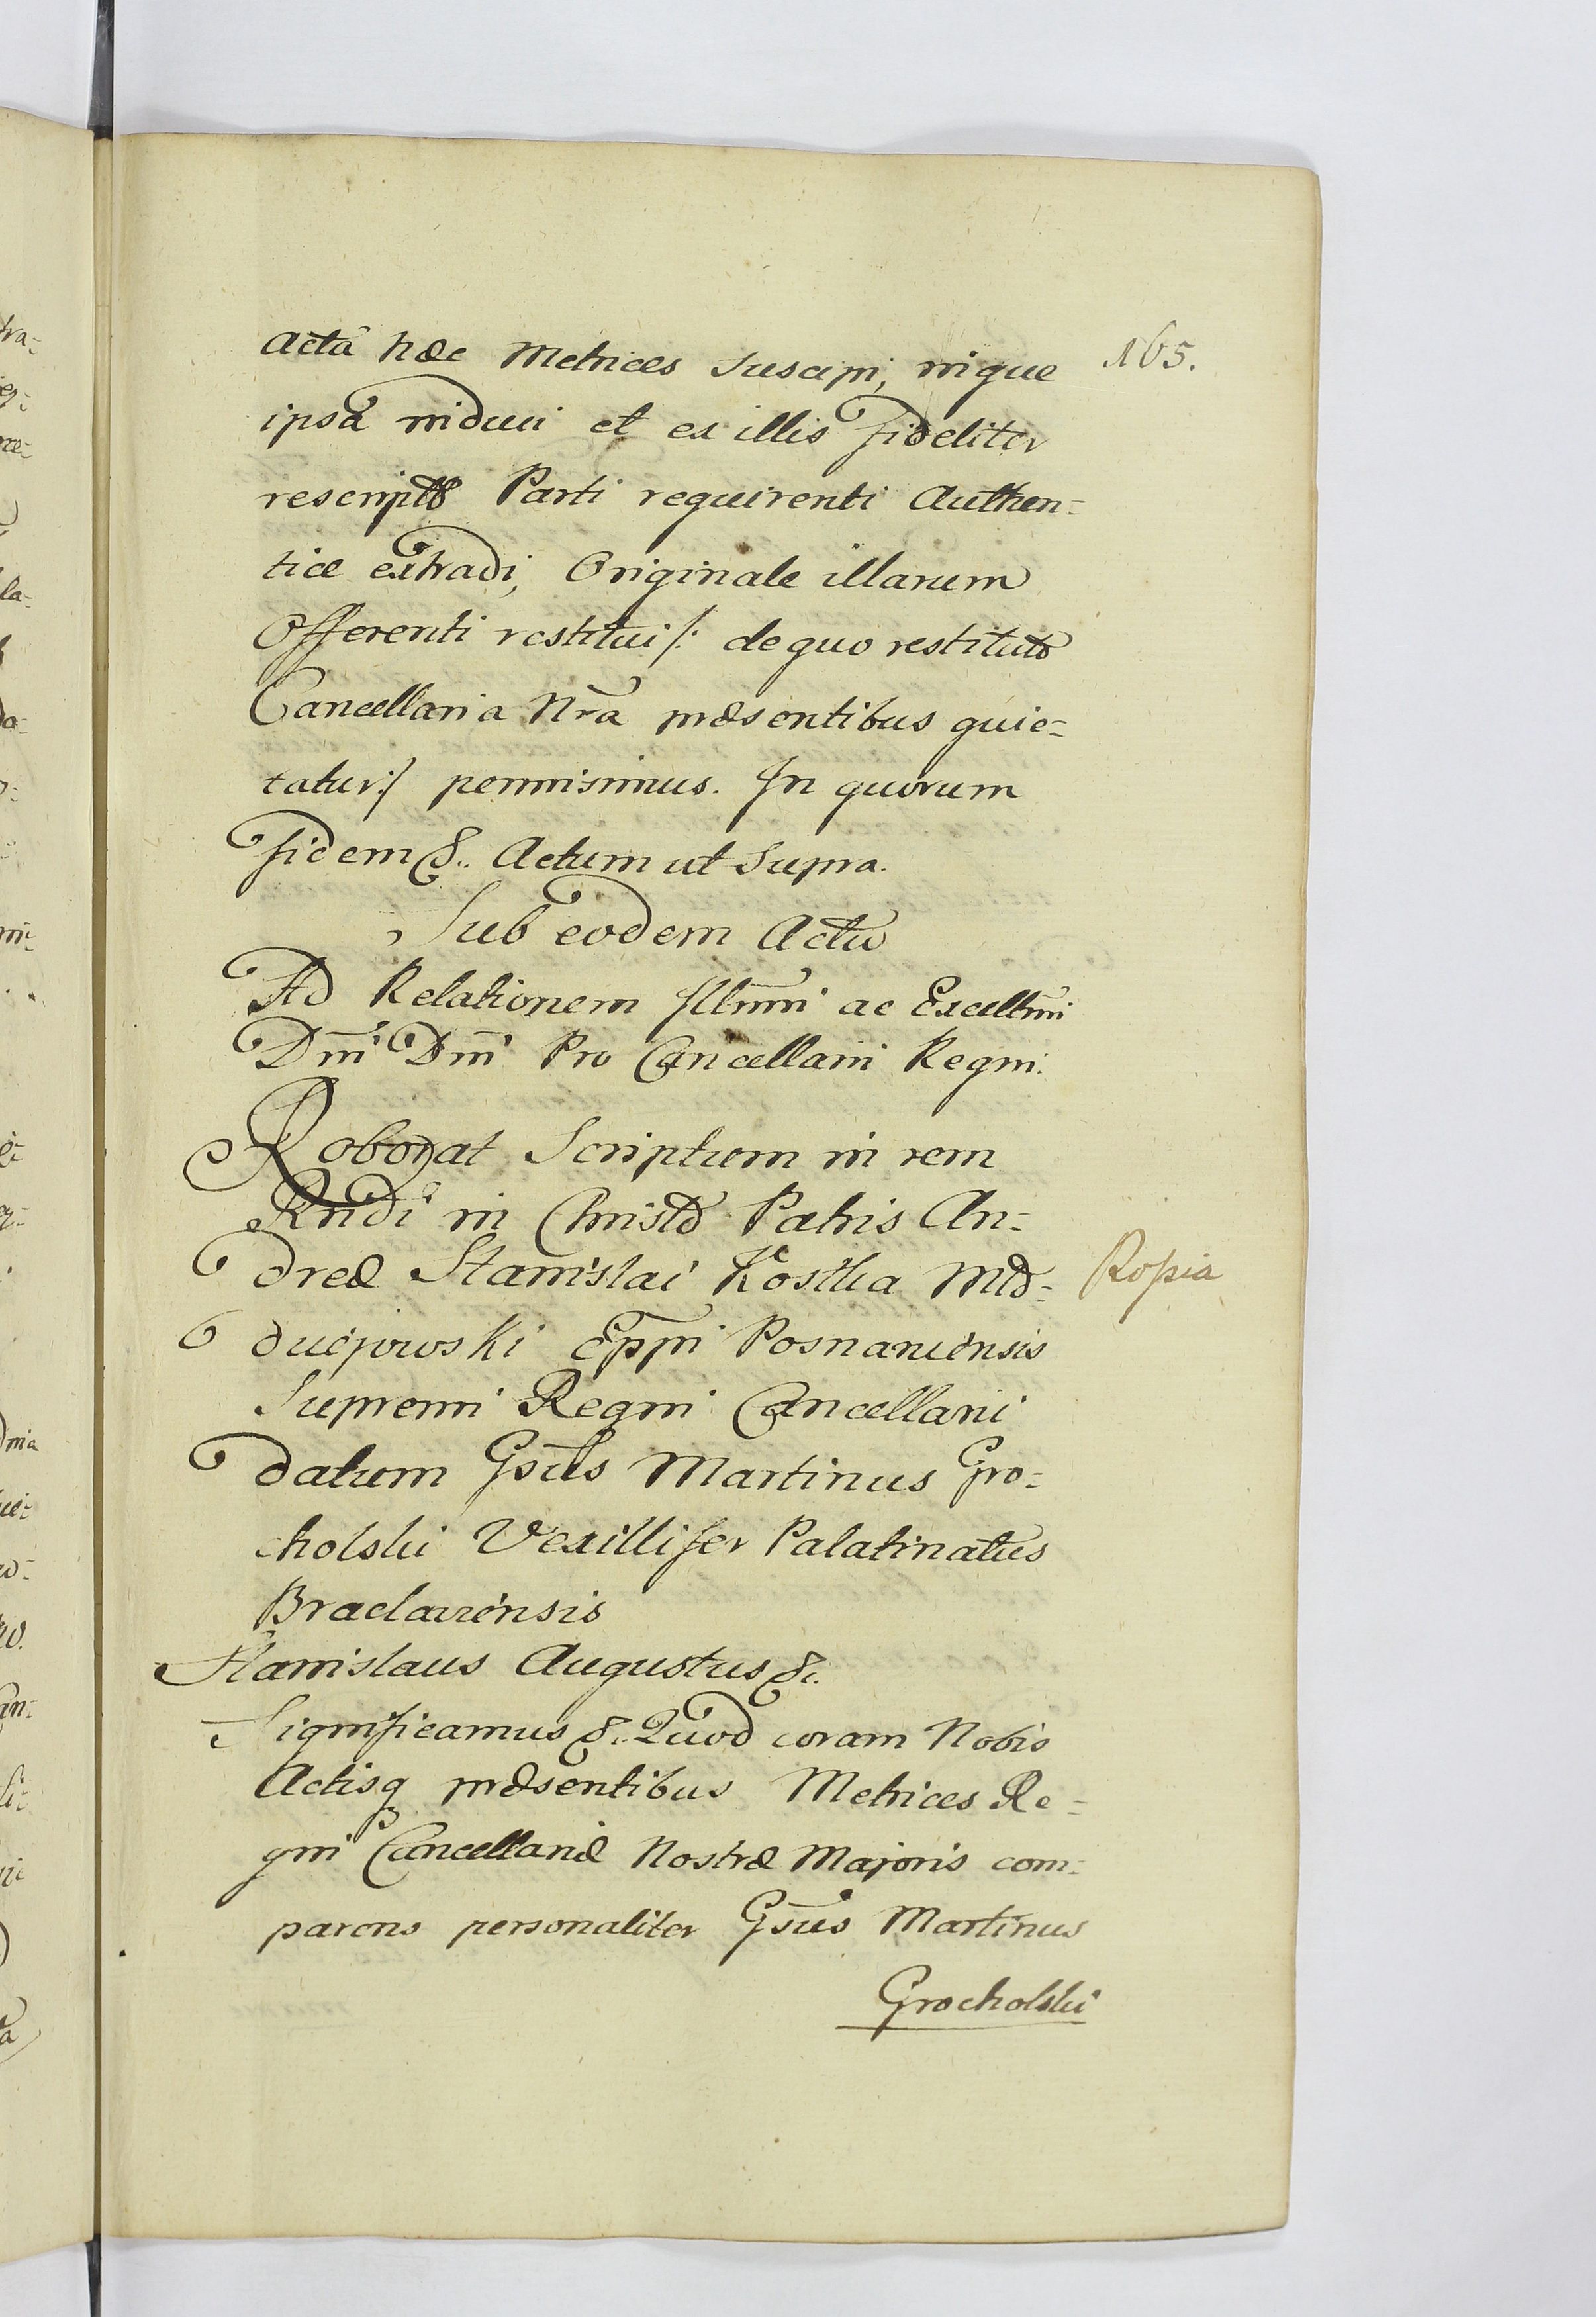 165.
Acta hæc Metrices suscipi, inque
ipsa induci et ex illis fideliter
rescriptæ Parti requirenti Authen=
tice extradi, Originale illarum
Offerenti restitui /: de quo restituto
Cancellaria Nra præsentibus quie=
tatur :/ permisimus. In quorum
fidem &. Actum ut supra.
Sub eodem Actu
Ad Relationem Illmi ac Excellmi
Dni Dni Pro Cancellarii Regni.
Roborat Scriptum in rem
Rndi in Christo Patris An=
dreæ Stanislai Kostka Mło=
Kopia
dziejowski Eppi Posnaniensis
Supremi Regni Cancellarii
datum Gsus Martinus Gro=
cholski Vexillifer Palatinatus
Braclaviensis
Stanislaus Augustus &.
Significamus &. Quod coram Nobis
Actisq præsentibus Metrices Re=
gni Cancellariæ Nostræ Majoris com=
parens personaliter Gsus Martinus
Grocholski